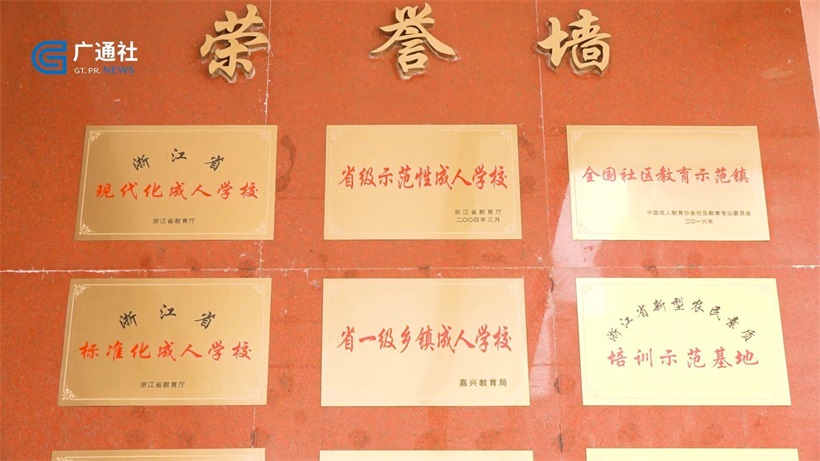 广通社
GT. PR. NEWS
荣誉墙
浙江省
现代化成人学校
浙江省教育厅
省级示范性成人学校
浙江省教育厅
二〇〇四年三月
全国社区教育示范镇
中国成人教育协会社区教育专业委员会
二〇一六年
浙江省
标准化成人学校
浙江省教育厅
省一级乡镇成人学校
嘉兴教育局
浙江省新型农民素质
培训示范基地